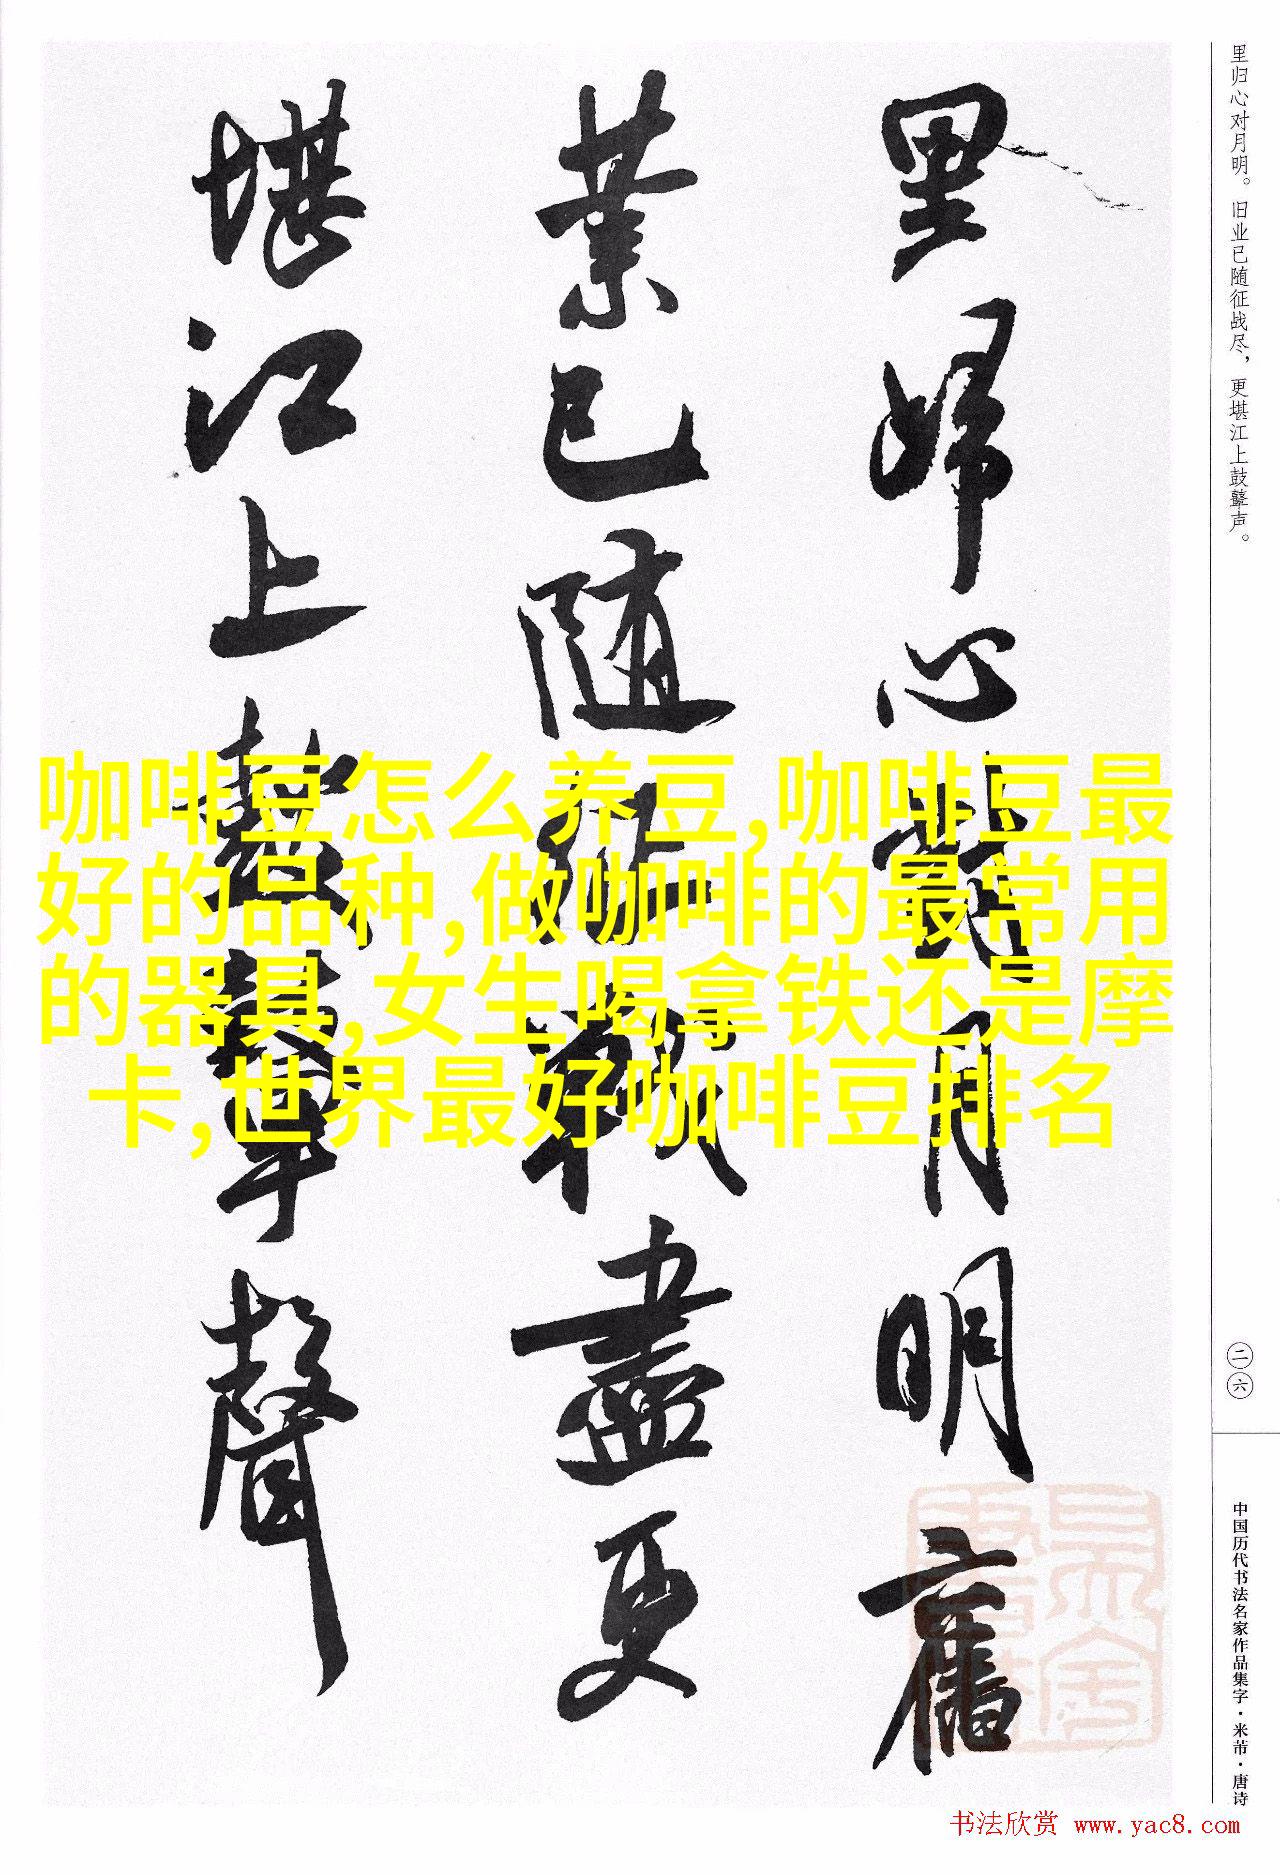 里归心对月明。旧业已随征战尽，更堪江上鼓鼙声。
里歸心對月明舊
業已隨征戰盡更
堪江上鼓鼙聲
咖啡豆怎么养豆,咖啡豆最
好的品种,做咖啡的最常用
的器具,女生喝拿铁还是摩
卡,世界最好咖啡豆排名
二六
中国历代书法名家作品集字·米芾·唐诗
书法欣赏 www.yac8.com